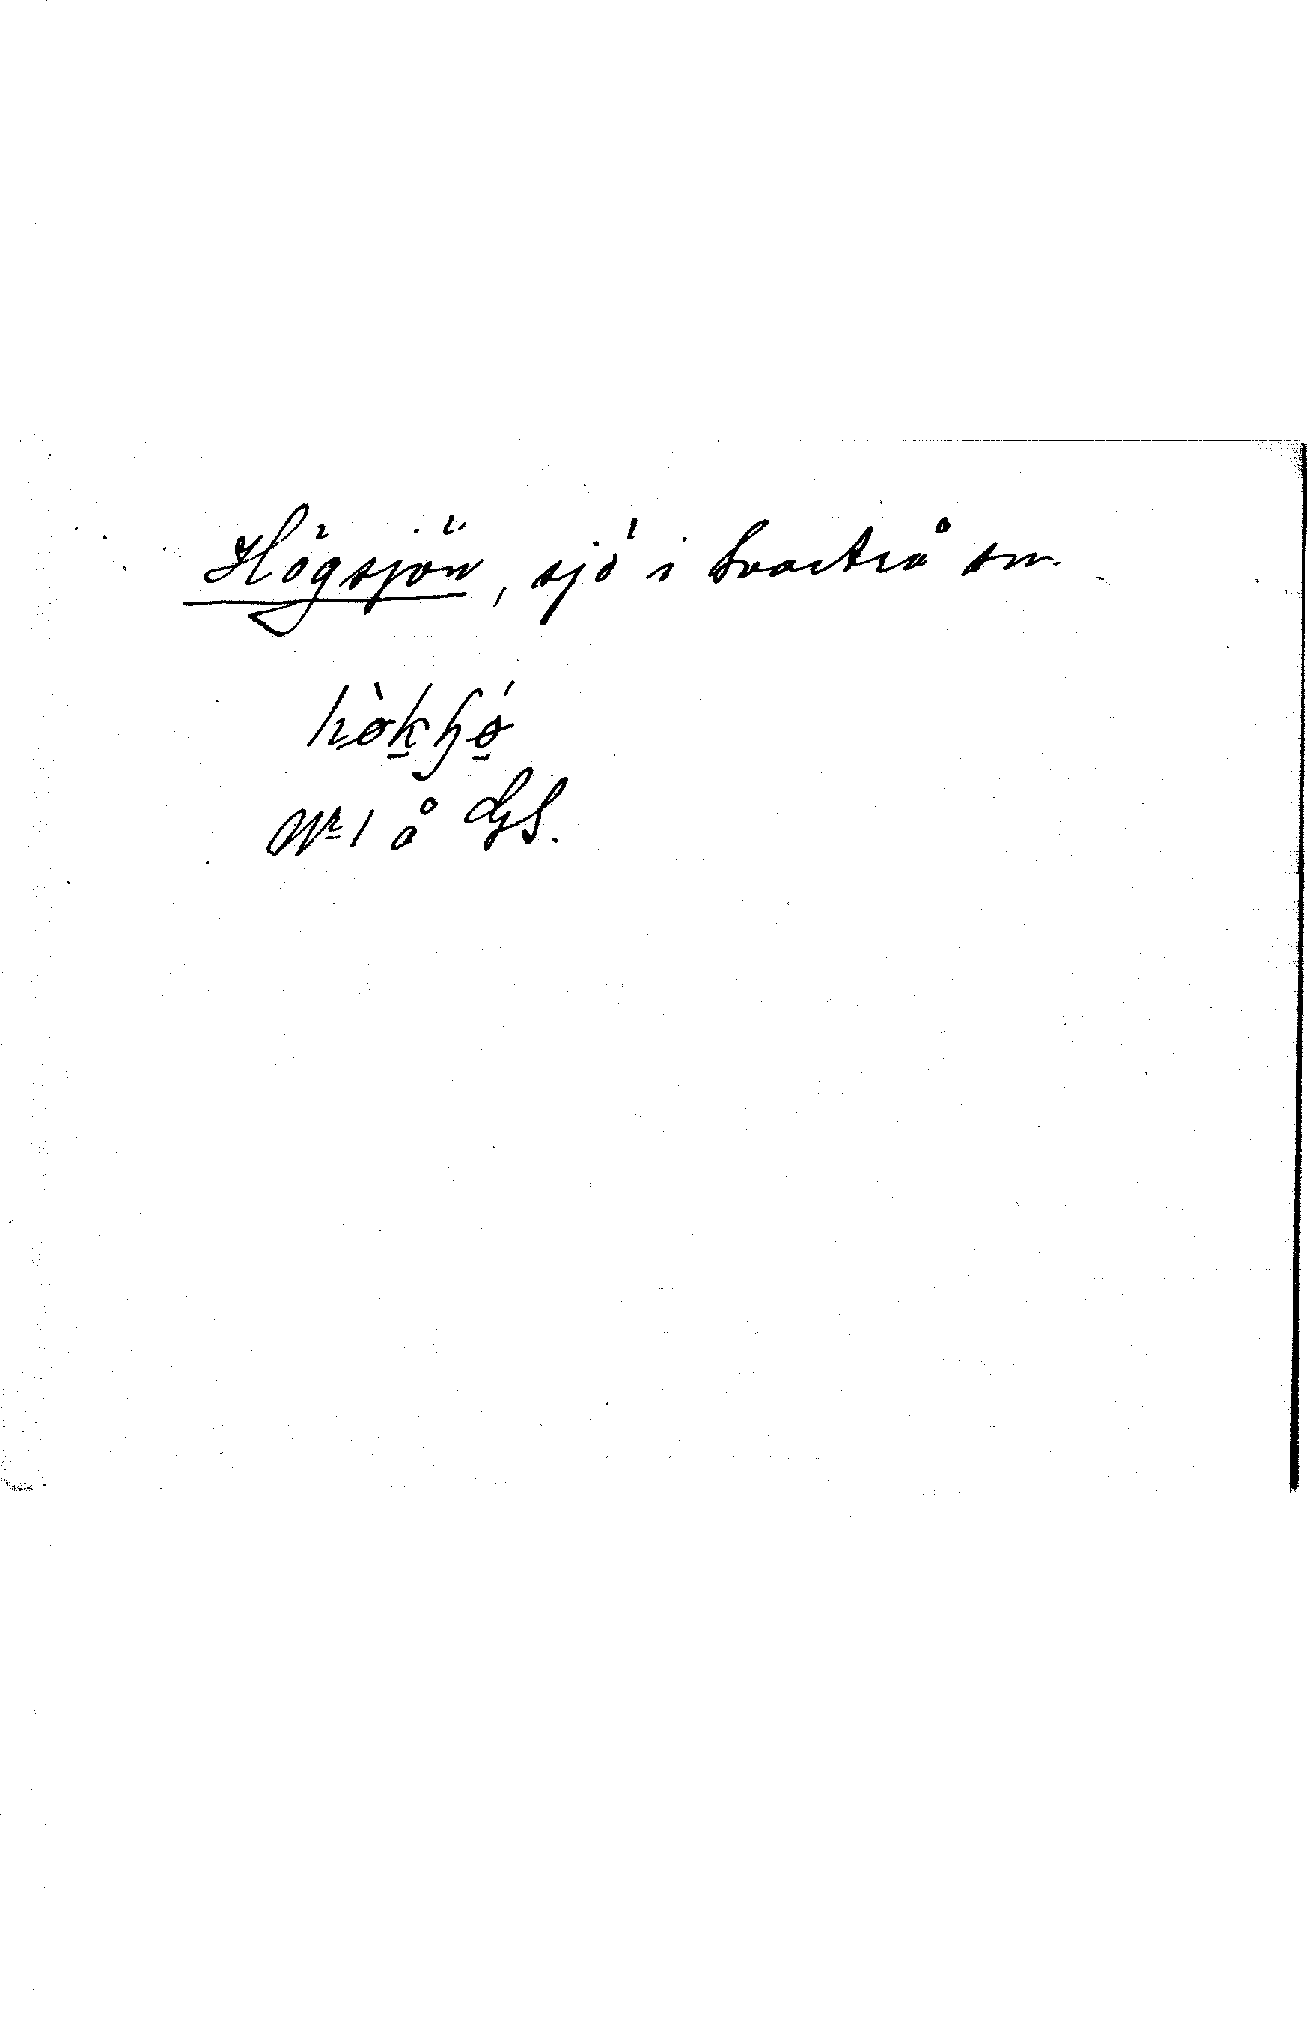 Högsjön, sjö i Svartrå sn.
hø̀kɧǿ
Nr 1 å GS.